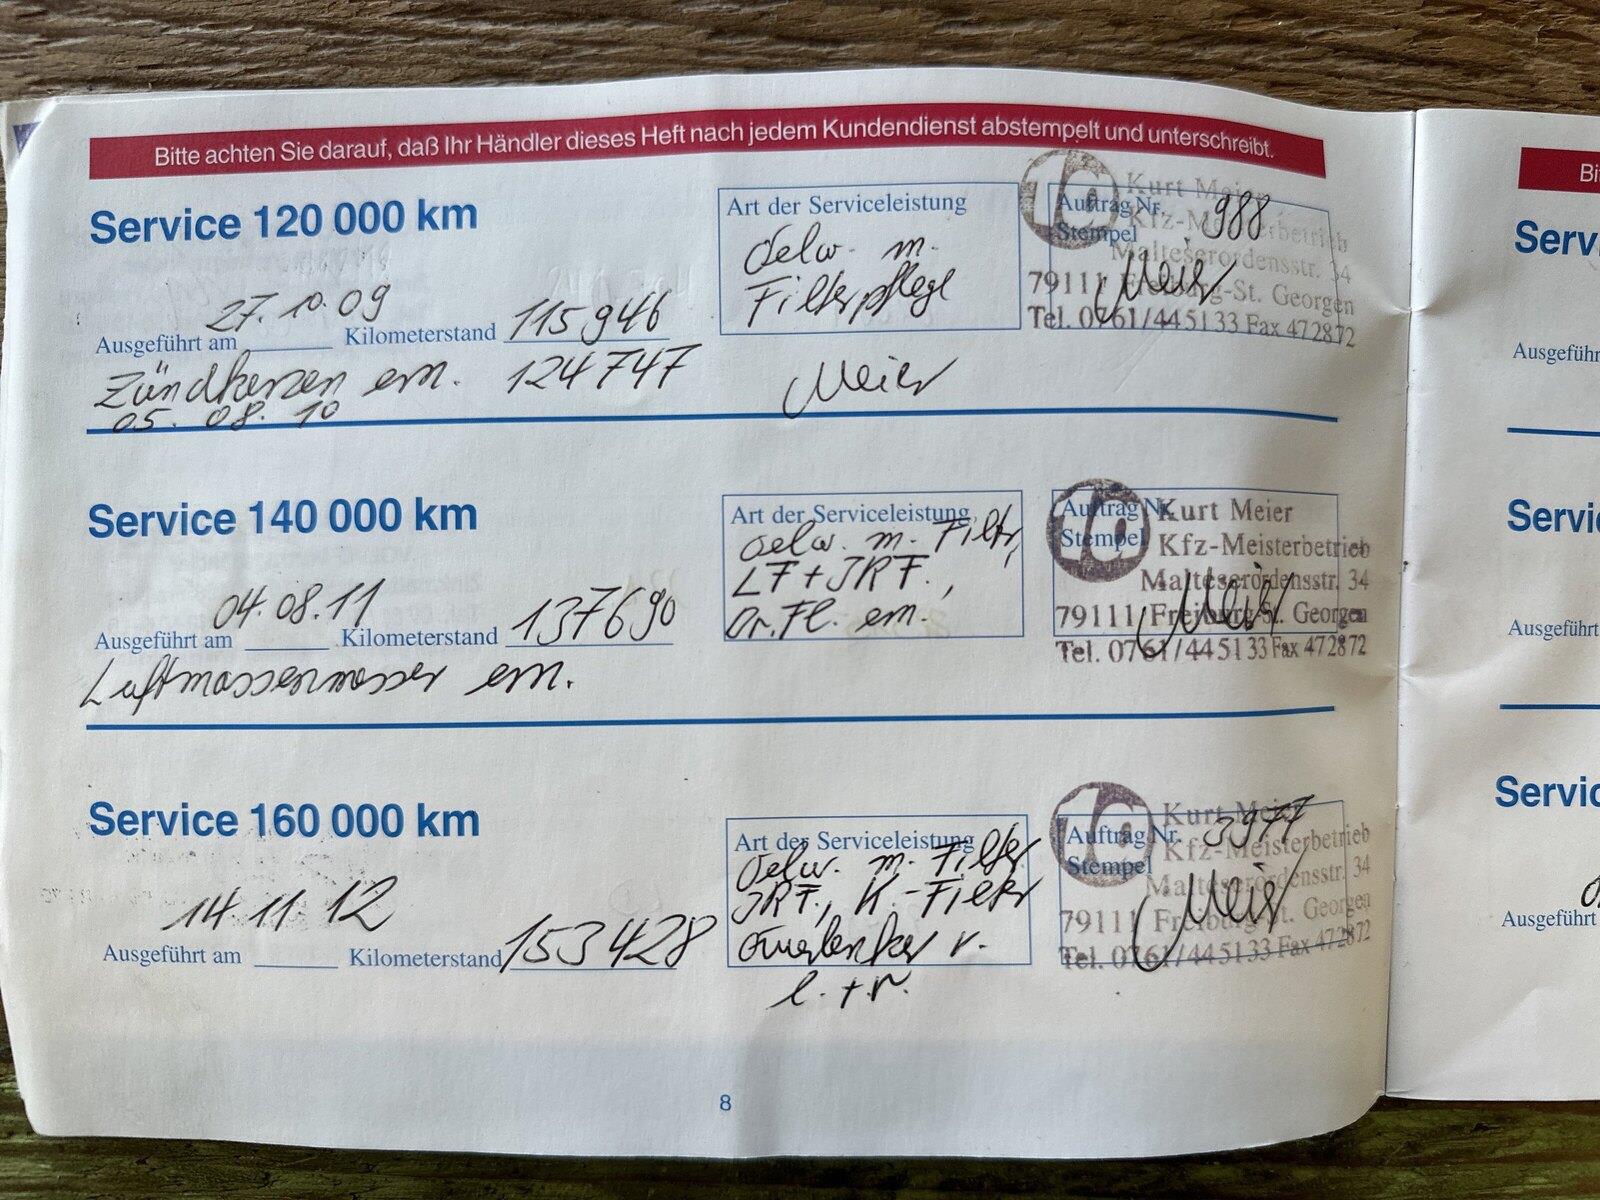 Bitte achten Sie darauf, daß Ihr Händler dieses Heft nach jedem Kundendienst abstempelt und unterschreibt.
Service 120 000 km
Art der Serviceleistung
Oelw. m.
Filterpflege
Auftrag Nr. 988
Stempel
Kurt Meier
Kfz-Meisterbetrieb
Malteserordensstr. 34
79111 Freiburg-St. Georgen
Tel. 0761/445133 Fax 472872
Meier
27.10.09
115946
Ausgeführt am Kilometerstand
Zündkerzen ern. 124747
Meier
05.08.10
Service 140 000 km
Art der Serviceleistung
Oelw. m. Filter,
LF + IRF.,
Dr.Fl. ern.
Auftrag Nr.
Stempel
Kurt Meier
Kfz-Meisterbetrieb
Malteserordensstr. 34
79111 Freiburg-St. Georgen
Tel. 0761/445133 Fax 472872
Meier
04.08.11
137690
Ausgeführt am Kilometerstand
Luftmassenmesser ern.
Service 160 000 km
Art der Serviceleistung
Oelw. m. Filter
IRF., K.-Filter
Querlenker v.
l. + r.
Auftrag Nr. 3977
Stempel
Kurt Meier
Kfz-Meisterbetrieb
Malteserordensstr. 34
79111 Freiburg-St. Georgen
Tel. 0761/445133 Fax 472872
Meier
14.11.12
153428
Ausgeführt am Kilometerstand
8
Bit
Serv
Ausgeführ
Servic
Ausgeführt
Servic
Ausgeführt